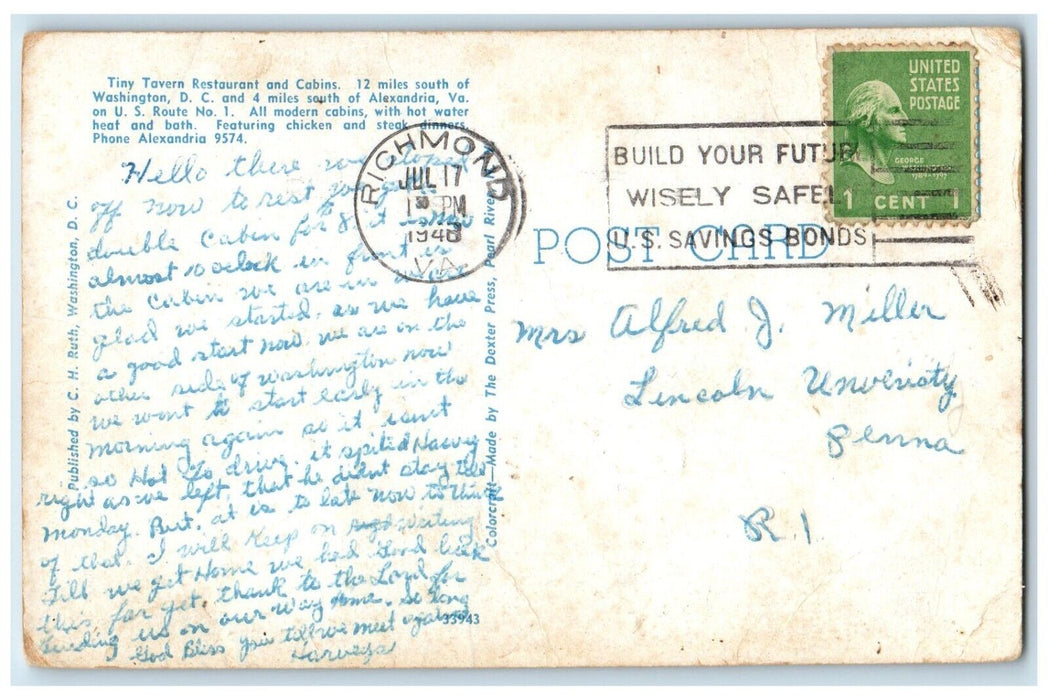 Tiny Tavern Restaurant and Cabins. 12 miles south of
Washington, D. C. and 4 miles south of Alexandria, Va.
on U. S. Route No. 1. All modern cabins, with hot water
heat and bath. Featuring chicken and steak dinners.
Phone Alexandria 9574.
Hello there we stoped
off now to rest we got
double Cabin for 8 it is now
almost 10 oclock in front of
the Cabin we are in
glad we started, as we have
a good start now. we are on the
other side of Washington now
we want to start early in the
morning again so it isent
so Hot to drive, it spited Harvey
right as we left, that he dident stay till
monday. But, it is to late now to think
of that. I will Keep on writing
till we get Home we had Good luck
this far yet, thank to the Lord for
us on our way Home. So long
God Bless you till we meet again
Harveys
Published by C. H. Ruth, Washington, D. C.
Colorcraft—Made by The Dexter Press, Pearl River,
33943
RICHMOND
JUL 17
1 30 PM
1948
VA
BUILD YOUR FUTUR
WISELY SAFEL
U.S. SAVINGS BONDS
UNITED
STATES
POSTAGE
GEORGE
WASHINGTON
1 CENT 1
POST CARD
Mrs Alfred J. Miller
Lincoln Unveristy
Penna
R. 1